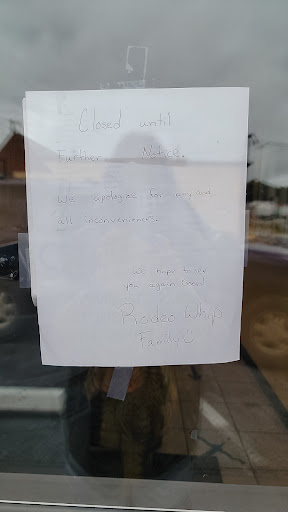 Closed until
Further Notice.
We apologize for any and
all inconveniences.
We hope to see
you again soon!
Rodeo Whip
Family